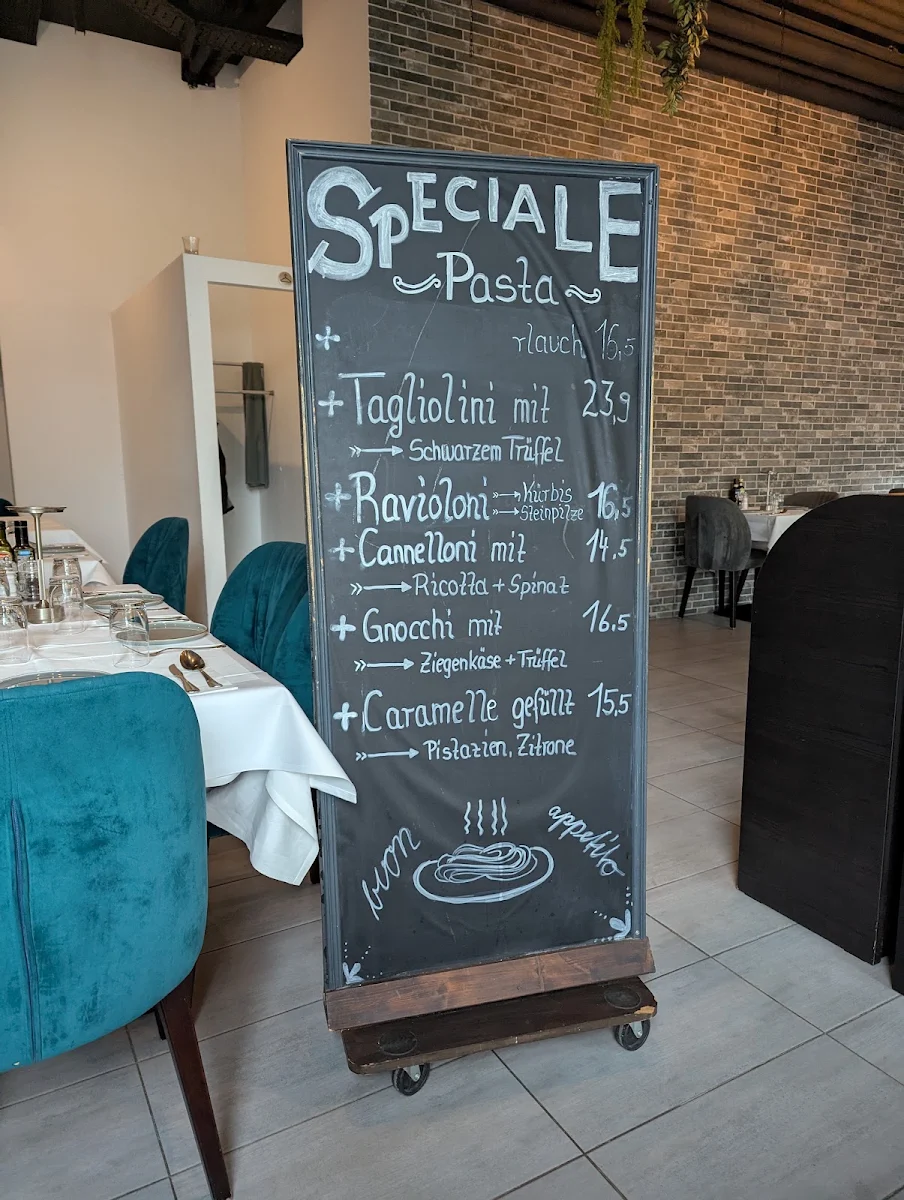 SPECIALE
Pasta
+ rlauch 16,5
+ Tagliolini mit 23,9
Schwarzem Trüffel
+ Ravioloni Kürbis 16,5
Steinpilze
+ Cannelloni mit 14.5
Ricotta + Spinat
+ Gnocchi mit 16.5
Ziegenkäse + Trüffel
+ Caramelle gefüllt 15,5
Pistazien, Zitrone
buon appetito